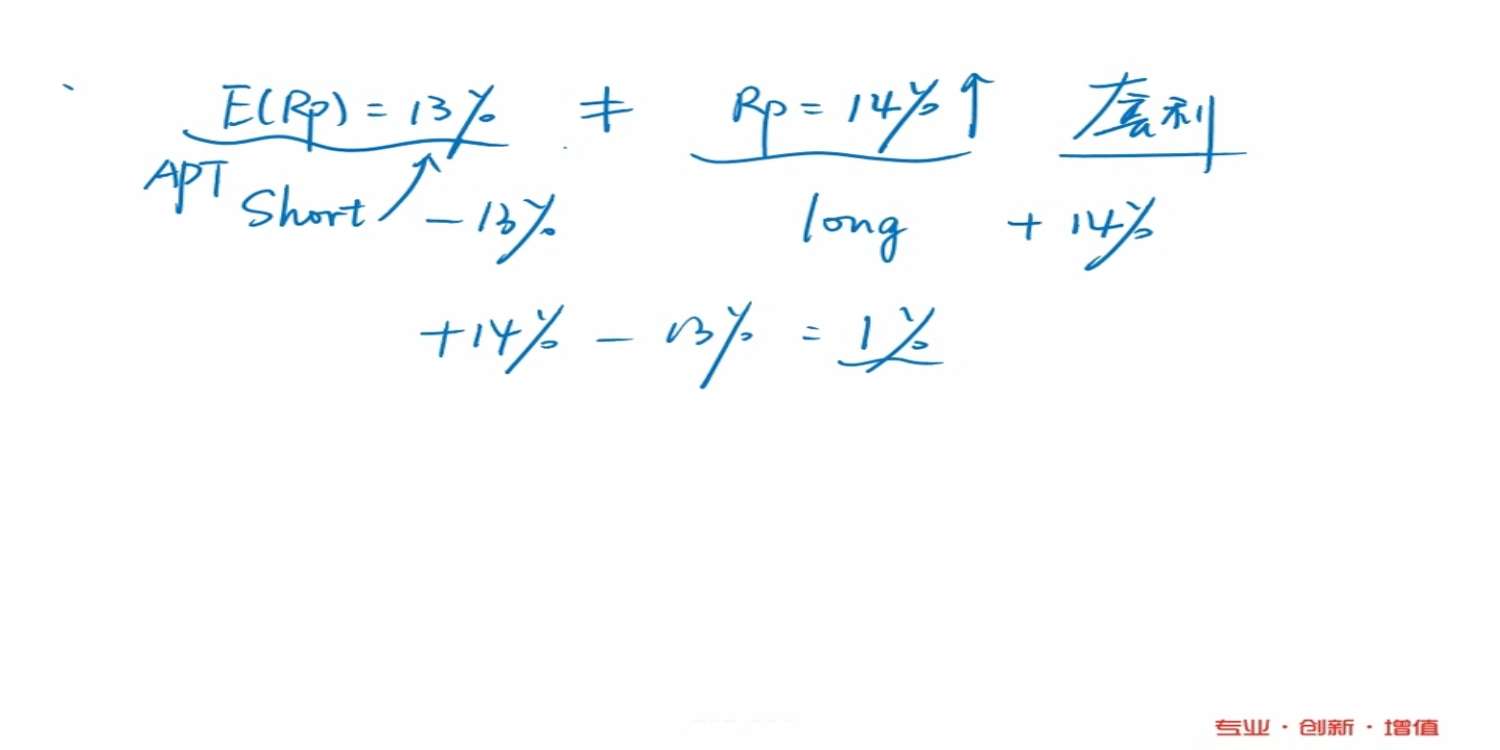 E(Rp) = 13% ≠ Rp = 14% ↑ 套利
APT Short ↗ -13% long + 14%
+14% - 13% = 1%
专业·创新·增值